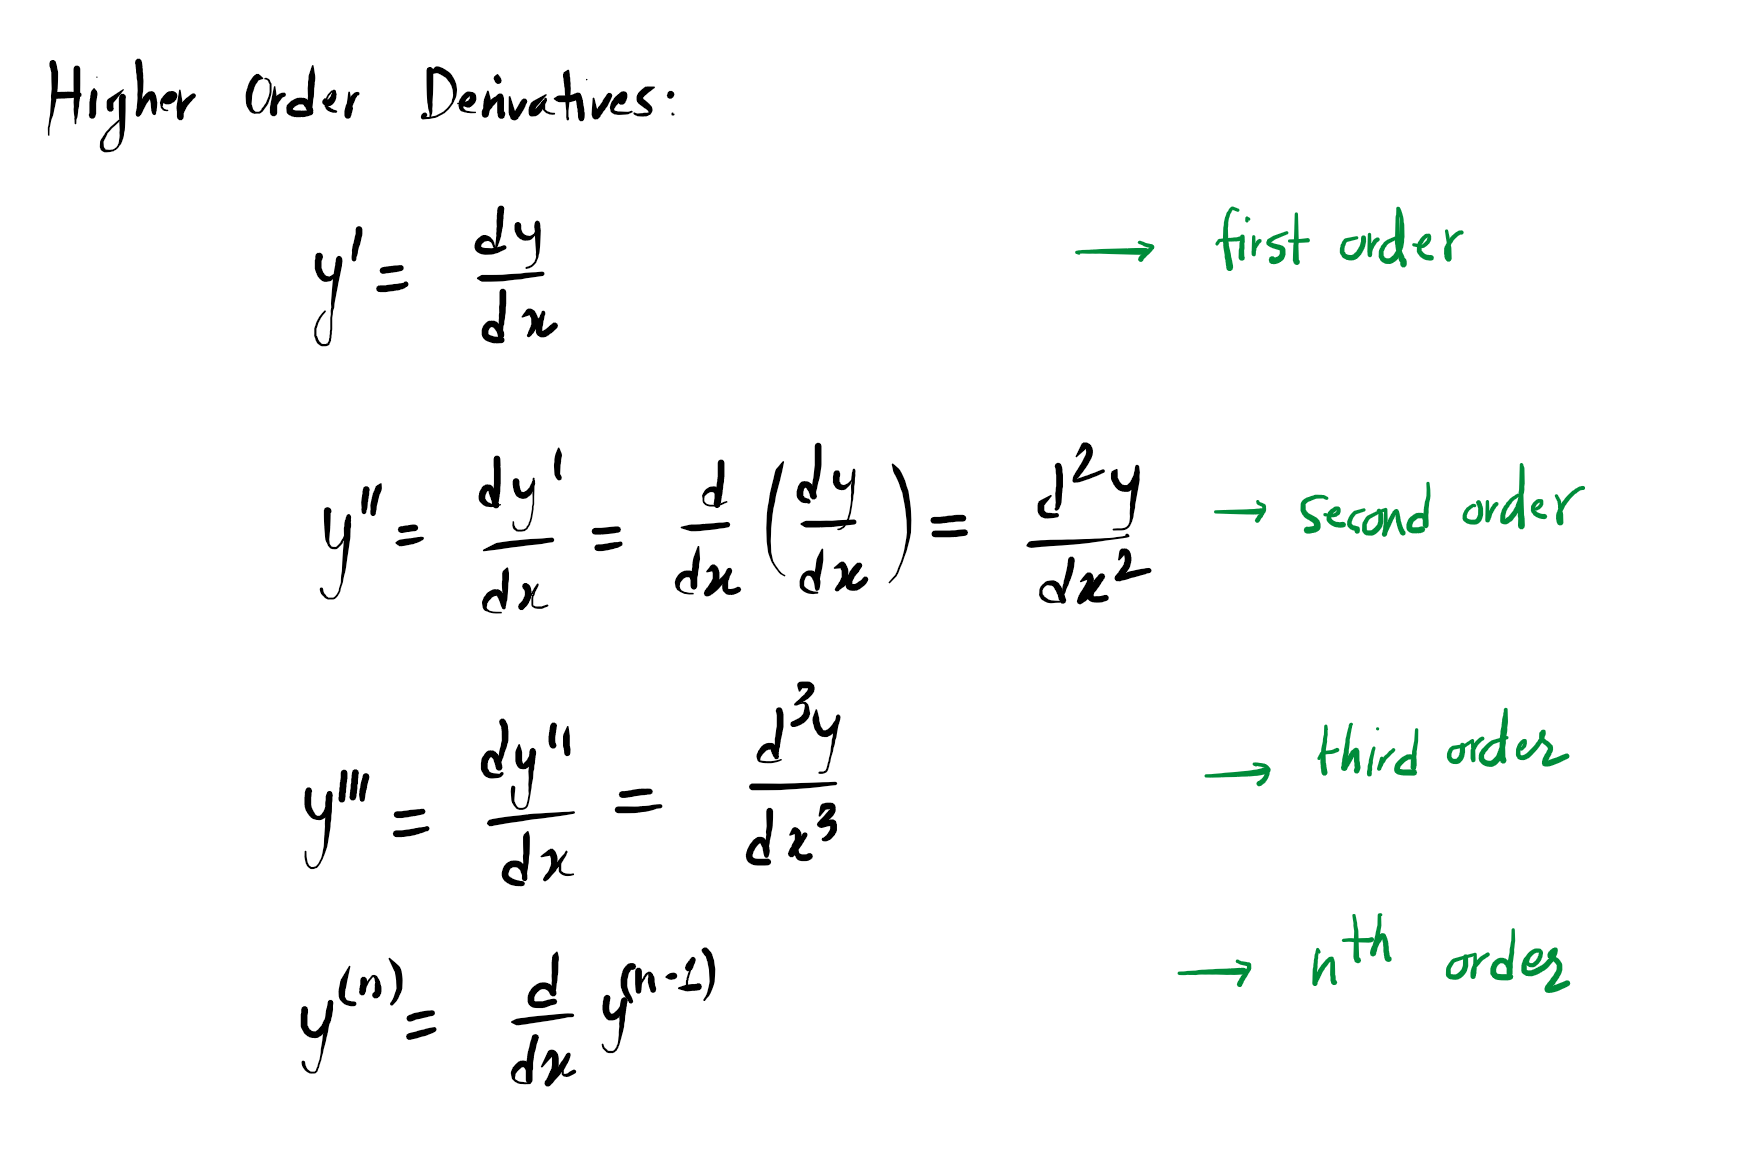 Higher Order Derivatives:
y' = dy/dx → first order
y'' = dy'/dx = d/dx (dy/dx) = d²y/dx² → second order
y''' = dy''/dx = d³y/dx³ → third order
y⁽ⁿ⁾ = d/dx y⁽ⁿ⁻¹⁾ → nᵗʰ order